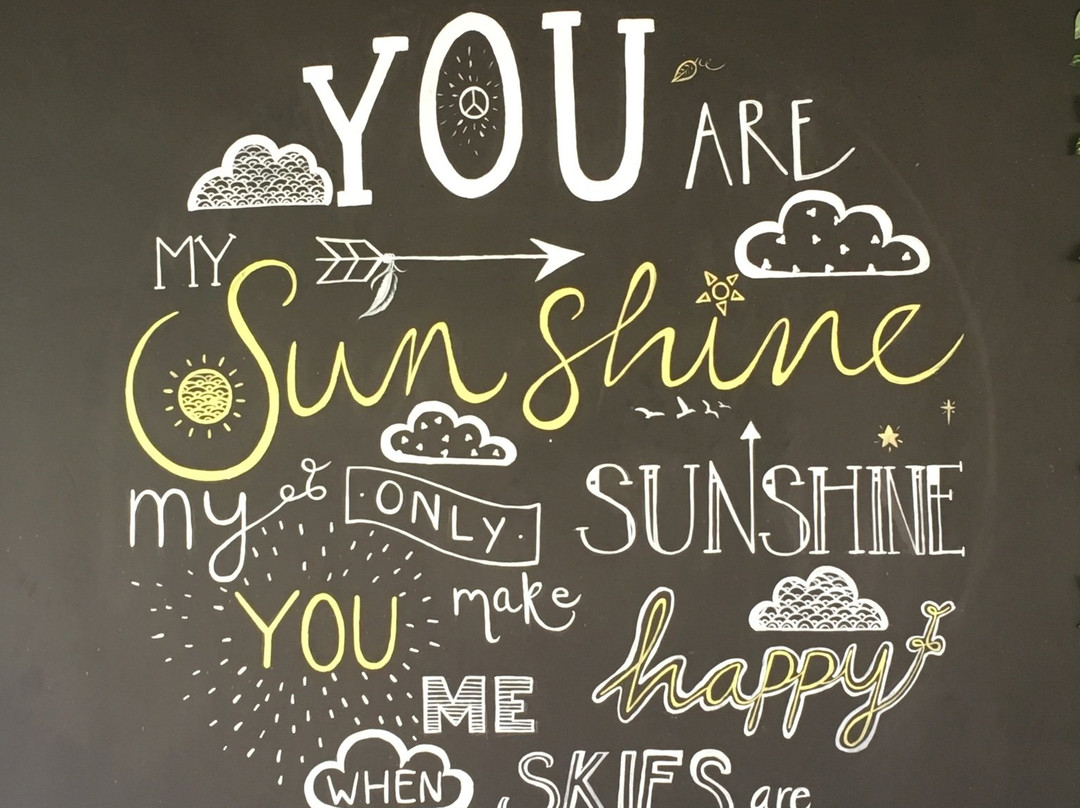 YOU ARE
MY
Sunshine
my ONLY SUNSHINE
YOU make
ME happy
WHEN SKIES are